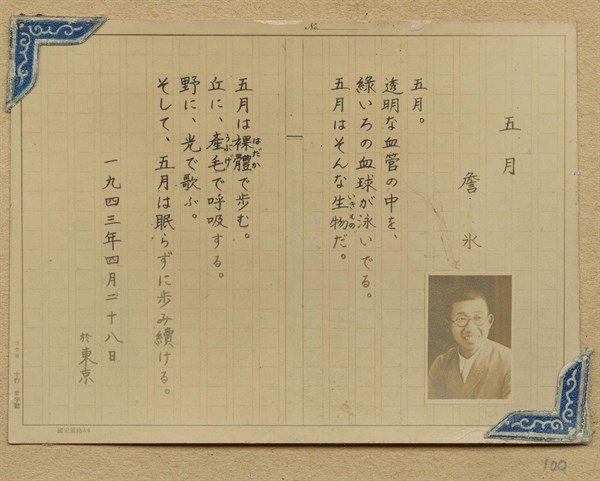 No.
五月
詹 氷
五月。
透明な血管の中を、
綠いろの血球が泳いでる。
五月はそんな生物だ。
いきもの
五月は裸體で步む。
はだか
丘に、產毛で呼吸する。
うぶげ
野に、光で歌ふ。
そして、五月は眠らずに步み續ける。
一九四三年四月二十八日
於東京
100